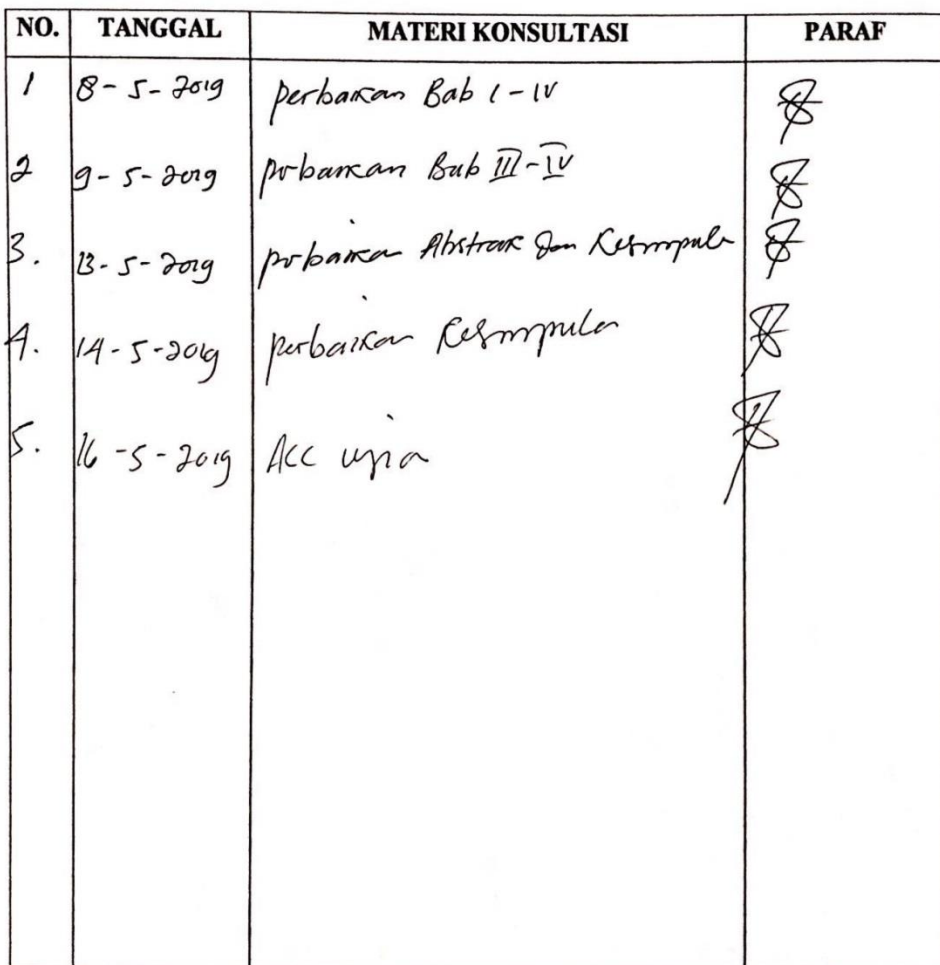 NO. TANGGAL MATERI KONSULTASI PARAF
1 8-5-2019 perbaikan Bab I-IV
2 9-5-2019 perbaikan Bab III-IV
3. 13-5-2019 perbaikan Abstrak dan Kesimpula
4. 14-5-2019 perbaikan Kesimpulan
5. 16-5-2019 ACC ujian